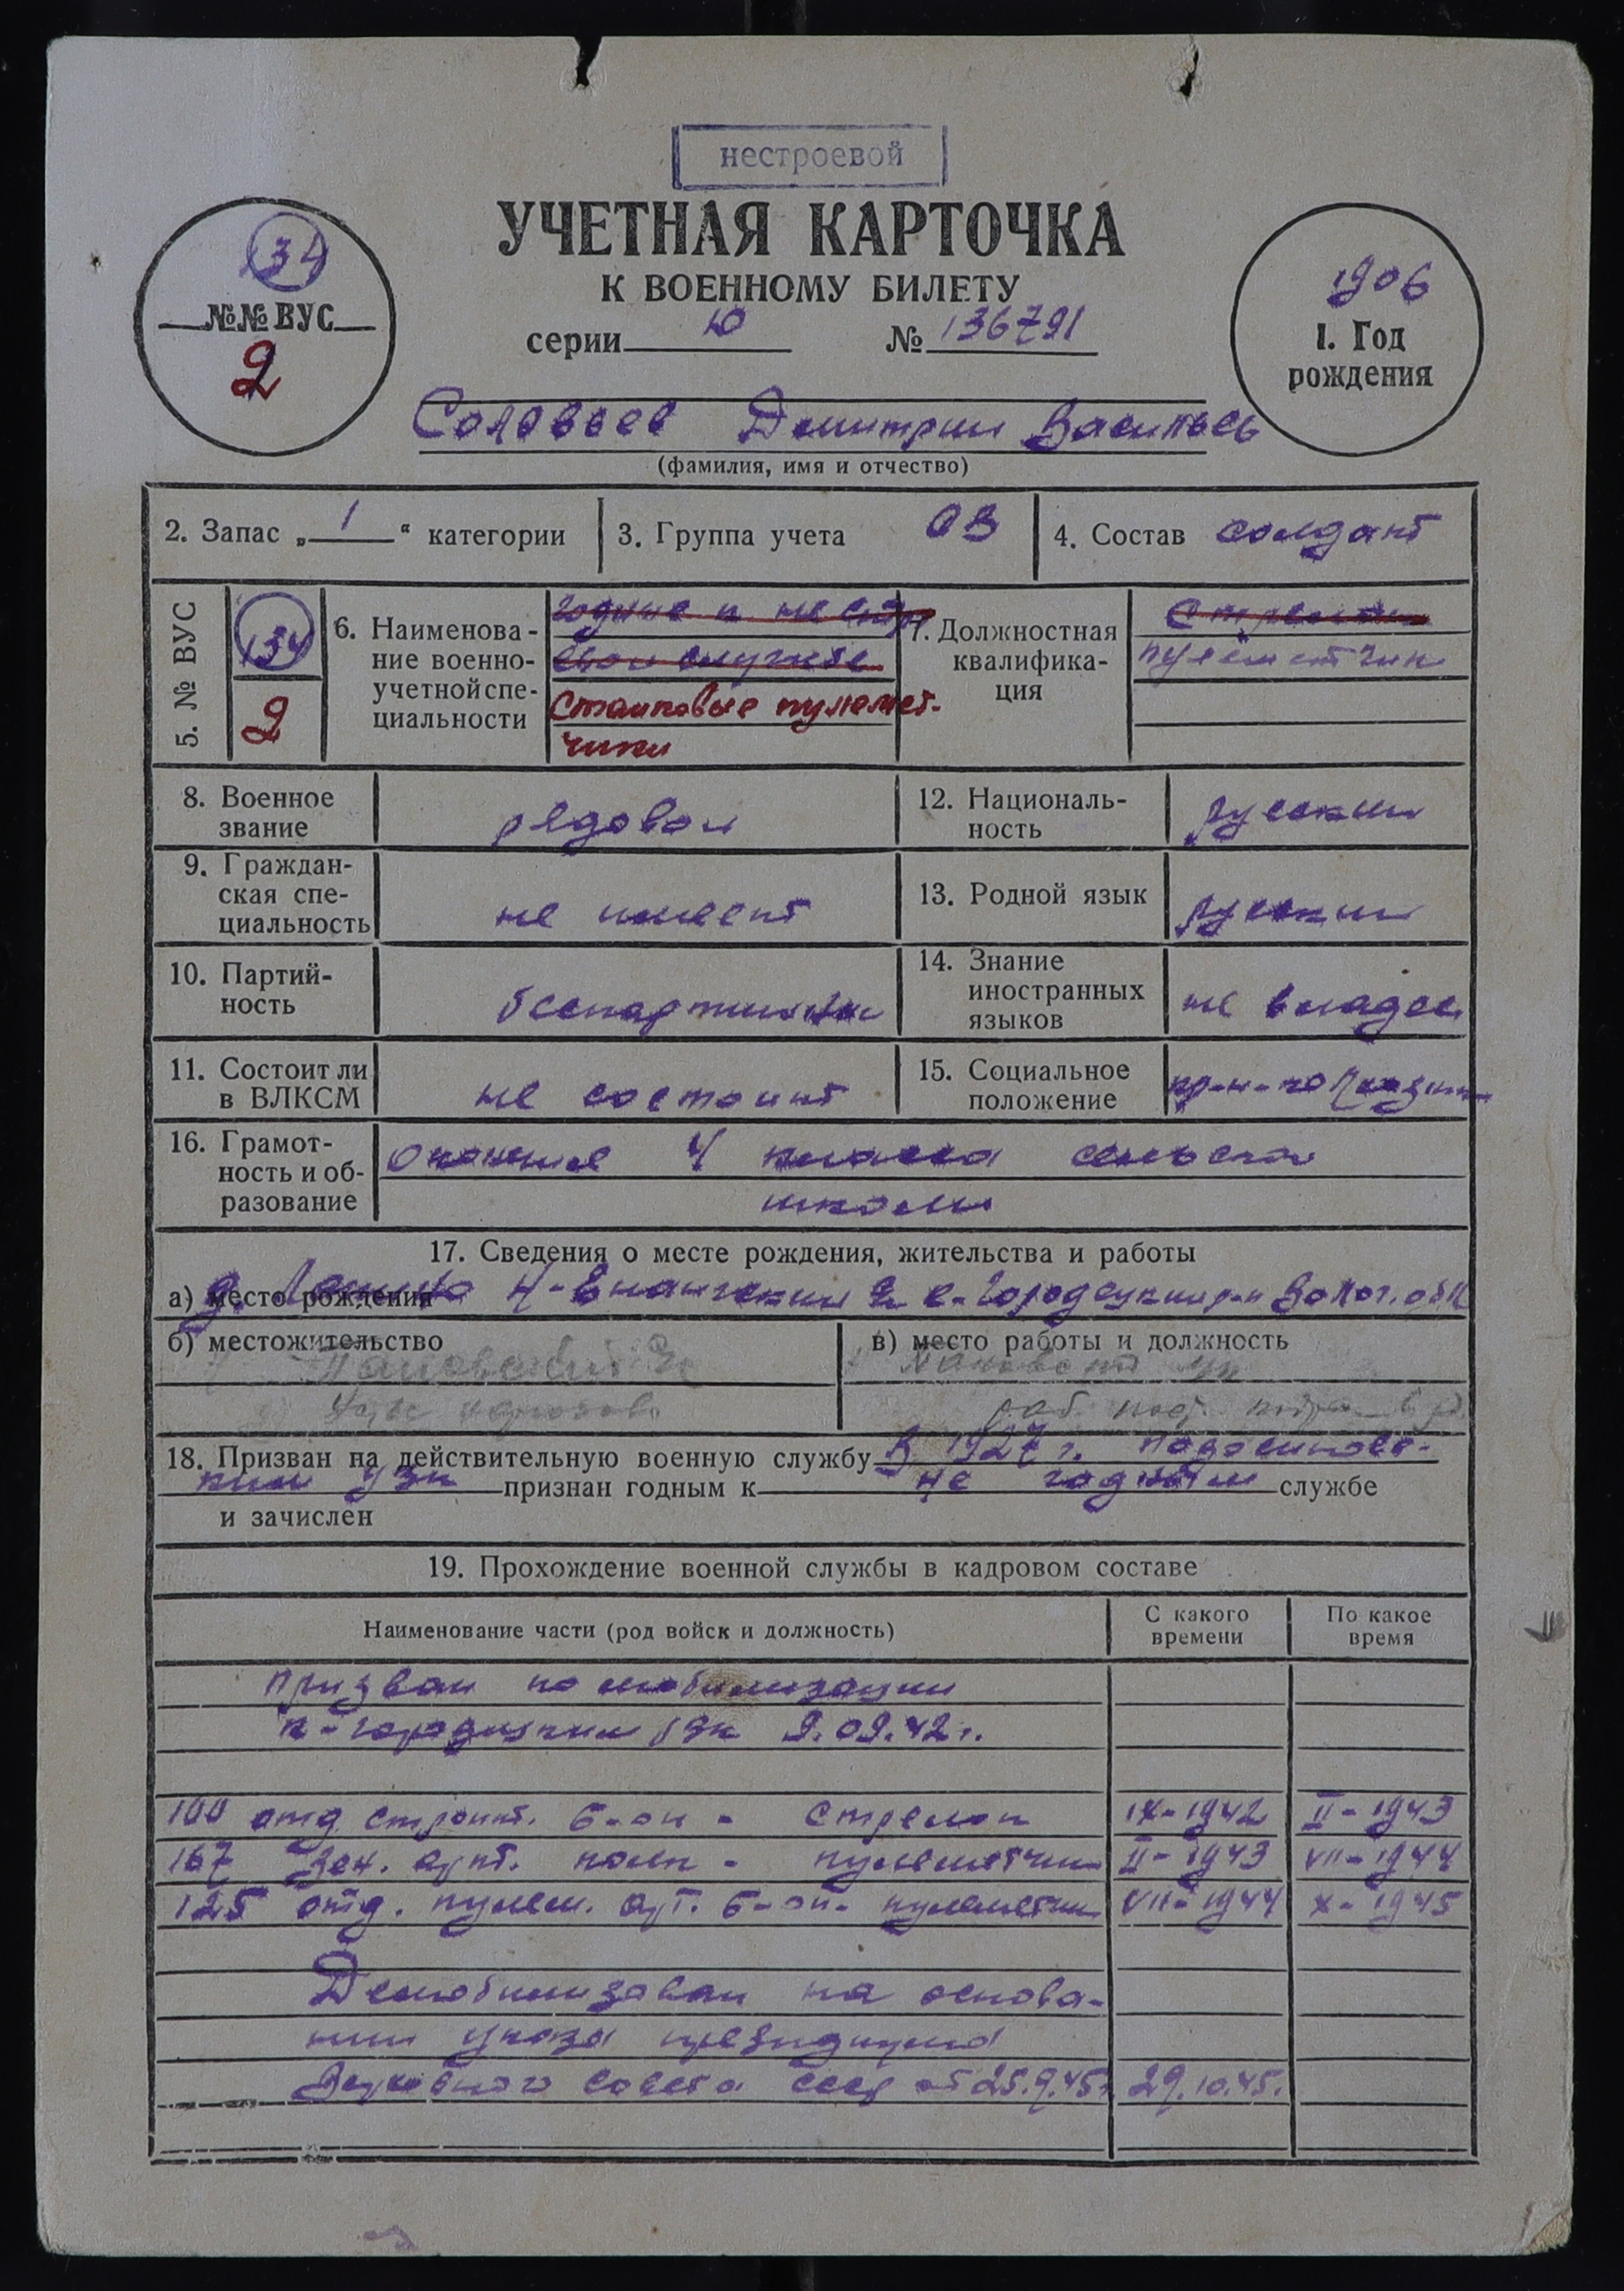 нестроевой
УЧЕТНАЯ КАРТОЧКА
К ВОЕННОМУ БИЛЕТУ
серии Ю № 136791
134
№№ ВУС
2
1906
1. Год
рождения
Соловьев Дмитрий Василь
(фамилия, имя и отчество)
2. Запас „ 1 “ категории
3. Группа учета ОВ
4. Состав солдат
5. № ВУС
134
2
6. Наименова-
ние военно-
учетной спе-
циальности
годные к не стро
евой службе
Станковые пулемет-
чики
7. Должностная
квалифика-
ция
Стрелки
пулеметчик
8. Военное
звание
рядовой
9. Граждан-
ская спе-
циальность
не имеет
10. Партий-
ность
беспартийный
11. Состоит ли
в ВЛКСМ
не состоит
12. Националь-
ность
русский
13. Родной язык
русский
14. Знание
иностранных
языков
не владее
15. Социальное
положение
16. Грамот-
ность и об-
разование
Окончил 4 класса сельской
школы
17. Сведения о месте рождения, жительства и работы
а) место рождения д. -Городецкий р-н Волог. обл
б) местожительство
в) место работы и должность
18. Призван на действительную военную службу В 1927 г. Подосиновс-
ким признан годным к не годным службе
и зачислен
19. Прохождение военной службы в кадровом составе
Наименование части (род войск и должность)
С какого
времени
По какое
время
Призван по мобилизации
к-городецким РВК 9.09.42 г.
100 отд. строит. б-он - стрелок IX-1942 II-1943
167 Зен. арт. полк - пулеметчик II-1943 VII-1944
125 отд. пулем. арт. б-он - пулеметчик VII-1944 X-1945
Демобилизован на основа-
нии указа президиума
Верховного совета СССР от 25.9.45 г. 29.10.45.